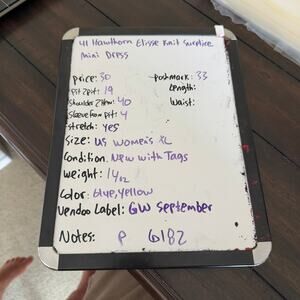 41 Hawthorn Elisse Knit Surplice
Mini Dress
price: 30 poshmark: 33
Pit 2 pit: 19 Length:
Shoulder 2 Hem: 40 Waist:
Sleeve from pit: 4
Stretch: yes
Size: US women's XL
Condition: New with Tags
Weight: 14oz
Color: blue, yellow
Vendoo Label: GW September
Notes: P 6182